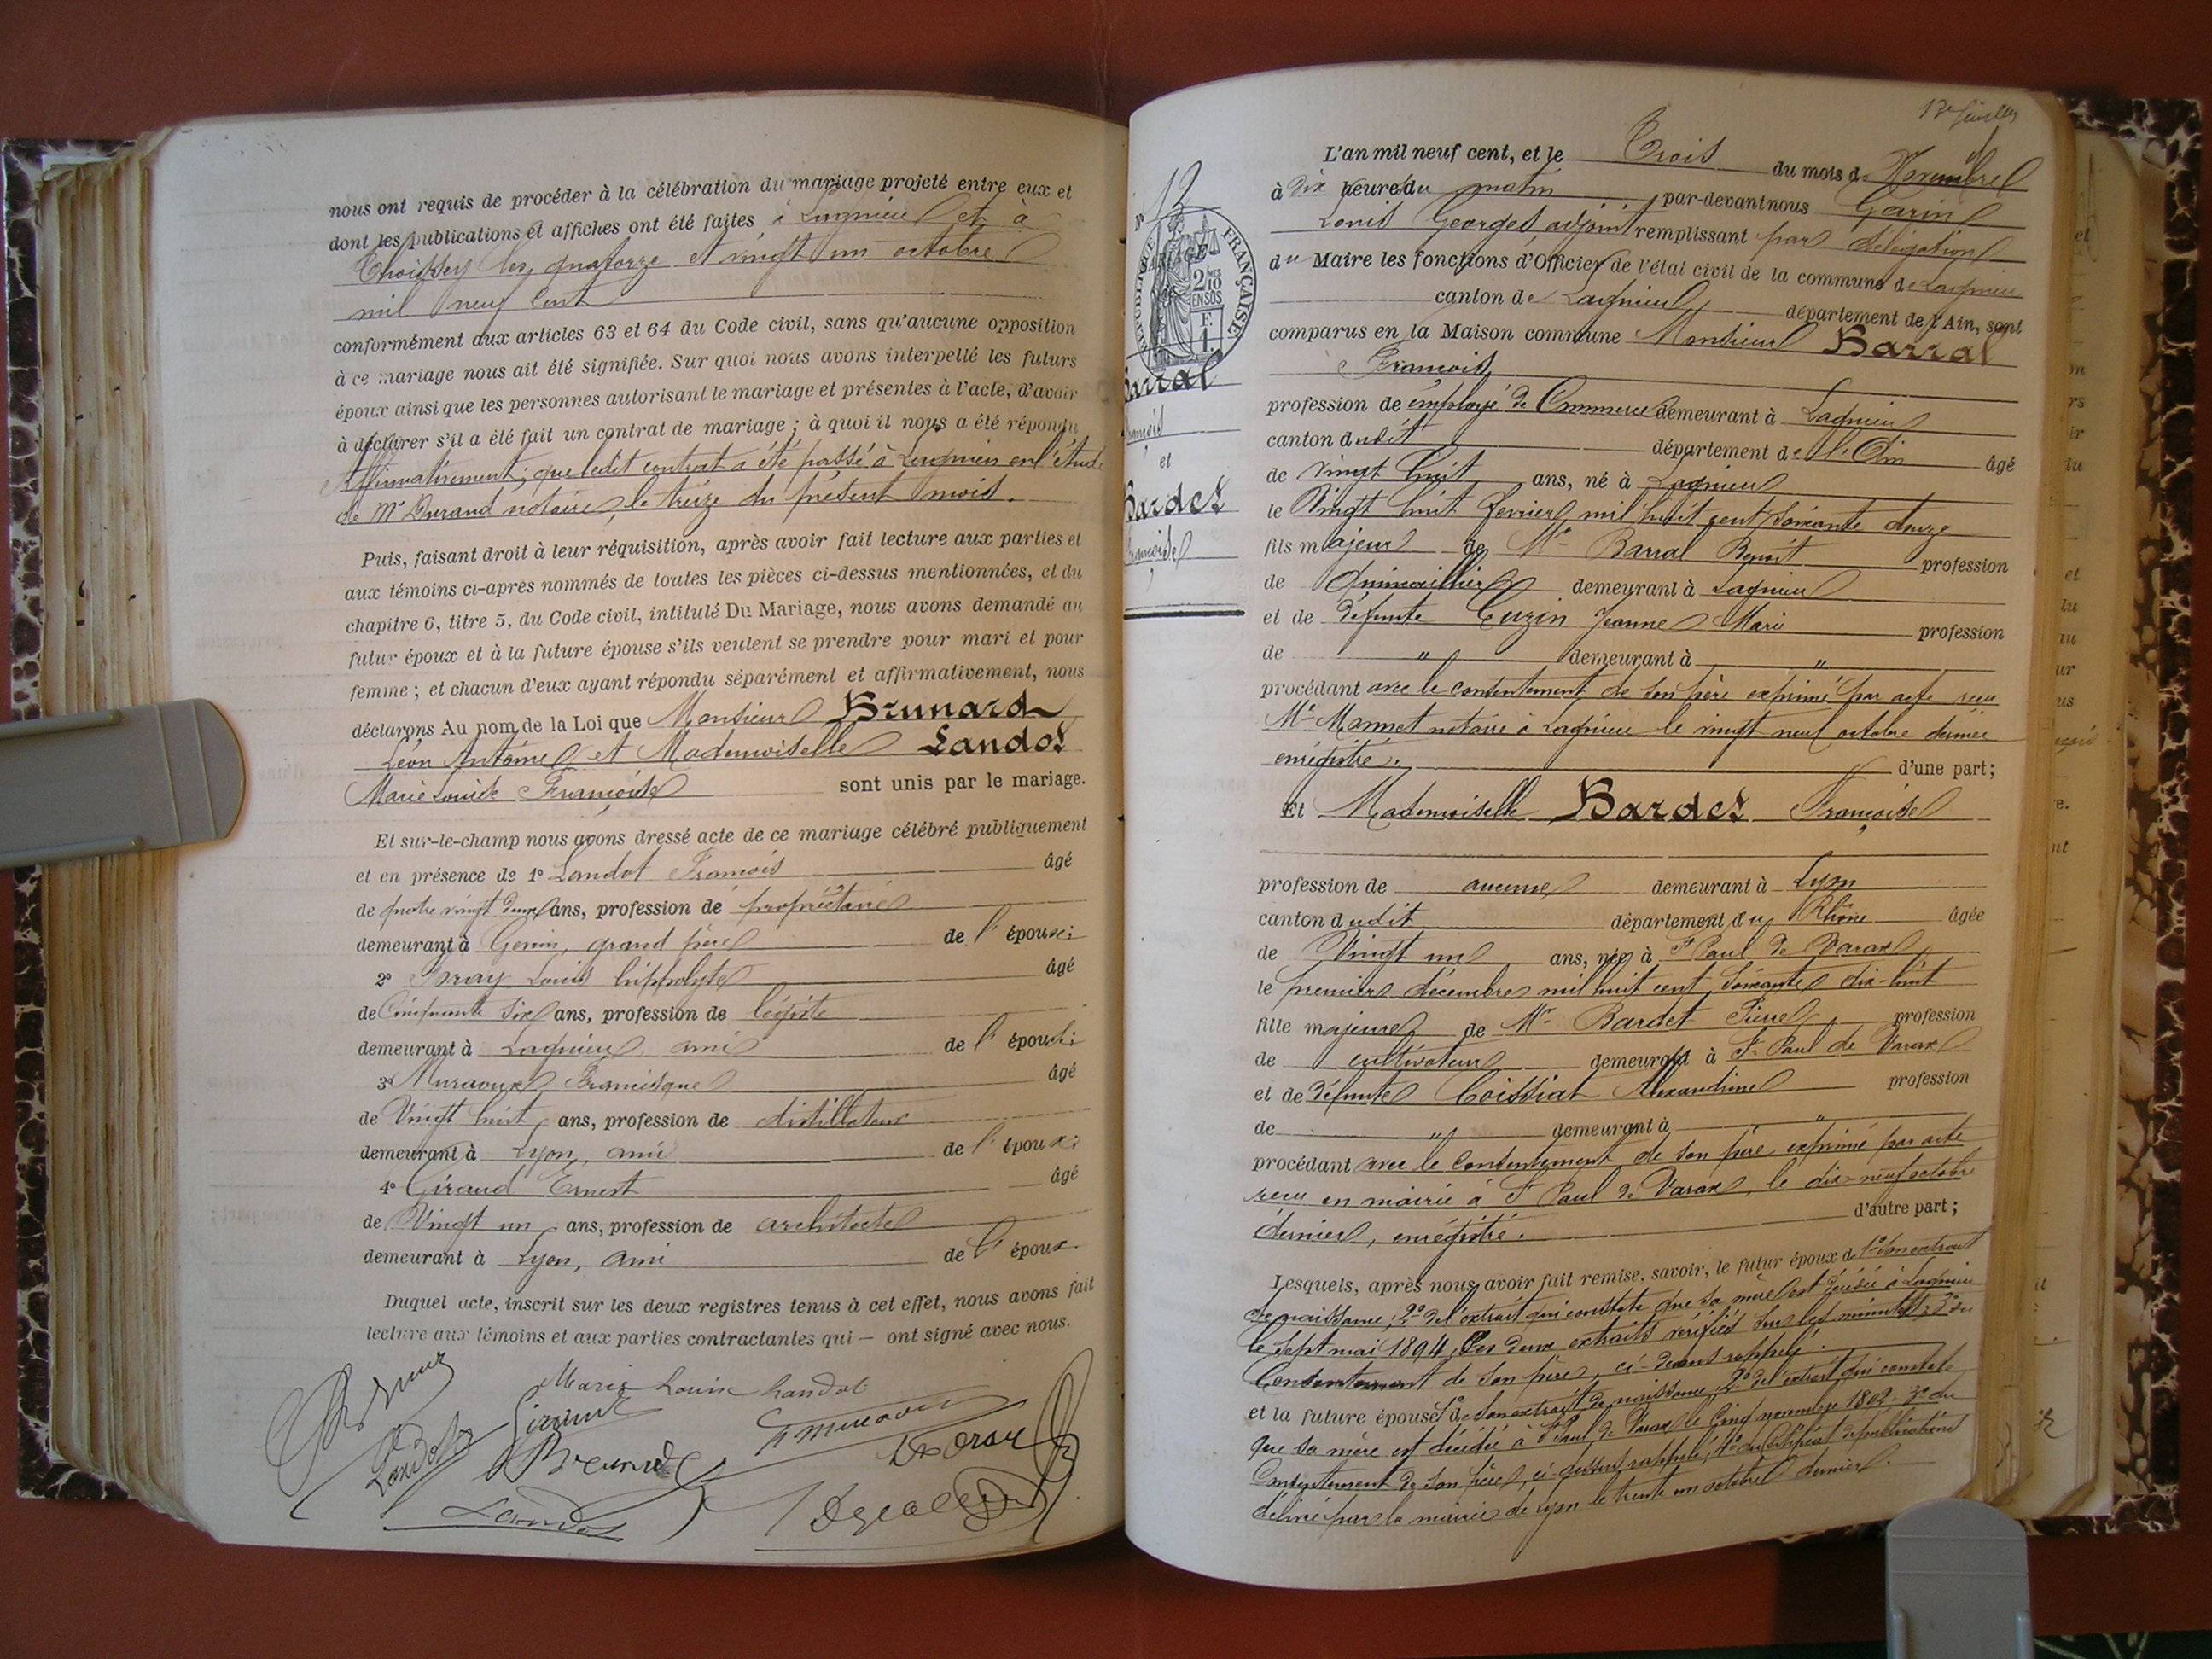 nous ont requis de procéder à la célébration du mariage projeté entre eux et
dont les publications et affiches ont été faites à Lagnieu et à
Thoissey les quatorze et vingt un octobre
mil neuf cent
conformément aux articles 63 et 64 du Code civil, sans qu'aucune opposition
à ce mariage nous ait été signifiée. Sur quoi nous avons interpellé les futurs
époux ainsi que les personnes autorisant le mariage et présentes à l'acte, d'avoir
à déclarer s'il a été fait un contrat de mariage ; à quoi il nous a été répondu
Affirmativement ; que ledit contrat a été passé à Lagnieu en l'étude
de Mr Durand notaire, le treize du présent mois.
Puis, faisant droit à leur réquisition, après avoir fait lecture aux parties et
aux témoins ci-après nommés de toutes les pièces ci-dessus mentionnées, et du
chapitre 6, titre 5, du Code civil, intitulé Du Mariage, nous avons demandé au
futur époux et à la future épouse s'ils veulent se prendre pour mari et pour
femme ; et chacun d'eux ayant répondu séparément et affirmativement, nous
déclarons Au nom de la Loi que Monsieur Brunard
Léon Antoine et Mademoiselle Landot
Marie Louise Françoise sont unis par le mariage.
Et sur-le-champ nous avons dressé acte de ce mariage célébré publiquement
et en présence de 1° Landot François âgé
de quatre vingt deux ans, profession de propriétaire
demeurant à grand père de l'épouse ;
2° Louis hippolyte âgé
de Cinquante Six ans, profession de légiste
demeurant à Lagnieu, ami de l'épouse ;
3° Francisque âgé
de Vingt huit ans, profession de distillateur
demeurant à Lyon, ami de l'époux ;
4° Giraud Ernest âgé
de Vingt un ans, profession de architecte
demeurant à Lyon, ami de l'époux.
Duquel acte, inscrit sur les deux registres tenus à cet effet, nous avons fait
lecture aux témoins et aux parties contractantes qui — ont signé avec nous.
Marie Louise Landot
Landot
Giraud
Brunard
Landot
13e feuillet
N° 12
RÉPUBLIQUE FRANÇAISE
2/10 EN SUS
Barral
François
et
Bardet
Françoise
L'an mil neuf cent, et le Trois du mois de Novembre
à Dix heures du matin par-devant nous Garin
Louis Georges adjoint remplissant par délégation
du Maire les fonctions d'Officier de l'état civil de la commune de Lagnieu
canton de Lagnieu département de l'Ain, sont
comparus en la Maison commune Monsieur Barral
François
profession de employé de Commerce demeurant à Lagnieu
canton dudit département de l'Ain âgé
de vingt huit ans, né à Lagnieu
le Vingt huit fevrier mil huit cent soixante douze
fils majeur de Mr Barral Benoît profession
de Quincaillier demeurant à Lagnieu
et de défunte Cuzin Jeanne Marie profession
de " demeurant à "
procédant avec le consentement de son père exprimé par acte reçu
Me Monnet notaire à Lagnieu le vingt neuf octobre dernier
enrégistré. d'une part ;
Et Mademoiselle Bardet Françoise
profession de aucune demeurant à Lyon
canton dudit département du Rhône âgée
de Vingt un ans, née à St Paul de Varax
le premier décembre mil huit cent soixante dix-huit
fille majeure de Mr Bardet Pierre profession
de cultivateur demeurant à St Paul de Varax
et de défunte Coissiat Alexandrine profession
de " demeurant à "
procédant avec le Consentement de son père exprimé par acte
reçu en mairie à St Paul de Varax, le dix-neuf octobre
dernier, enrégistré. d'autre part ;
Lesquels, après nous avoir fait remise, savoir, le futur époux de 1° son extrait
de naissance ; 2° de l'extrait qui constate que sa mère est décédée à Lagnieu
le sept mai 1894, Ces deux extraits vérifiés sur les minutes ; 3° du
Consentement de son père, ci-devant rappelé.
et la future épouse 1° de son extrait de naissance ; 2° de l'extrait qui constate
que sa mère est décédée à St Paul de Varax le Cinq novembre 1892. 3° du
Consentement de son père, ci-dessus rappelé ; 4° du Certificat de publications
délivré par la mairie de Lyon le trente un octobre dernier.